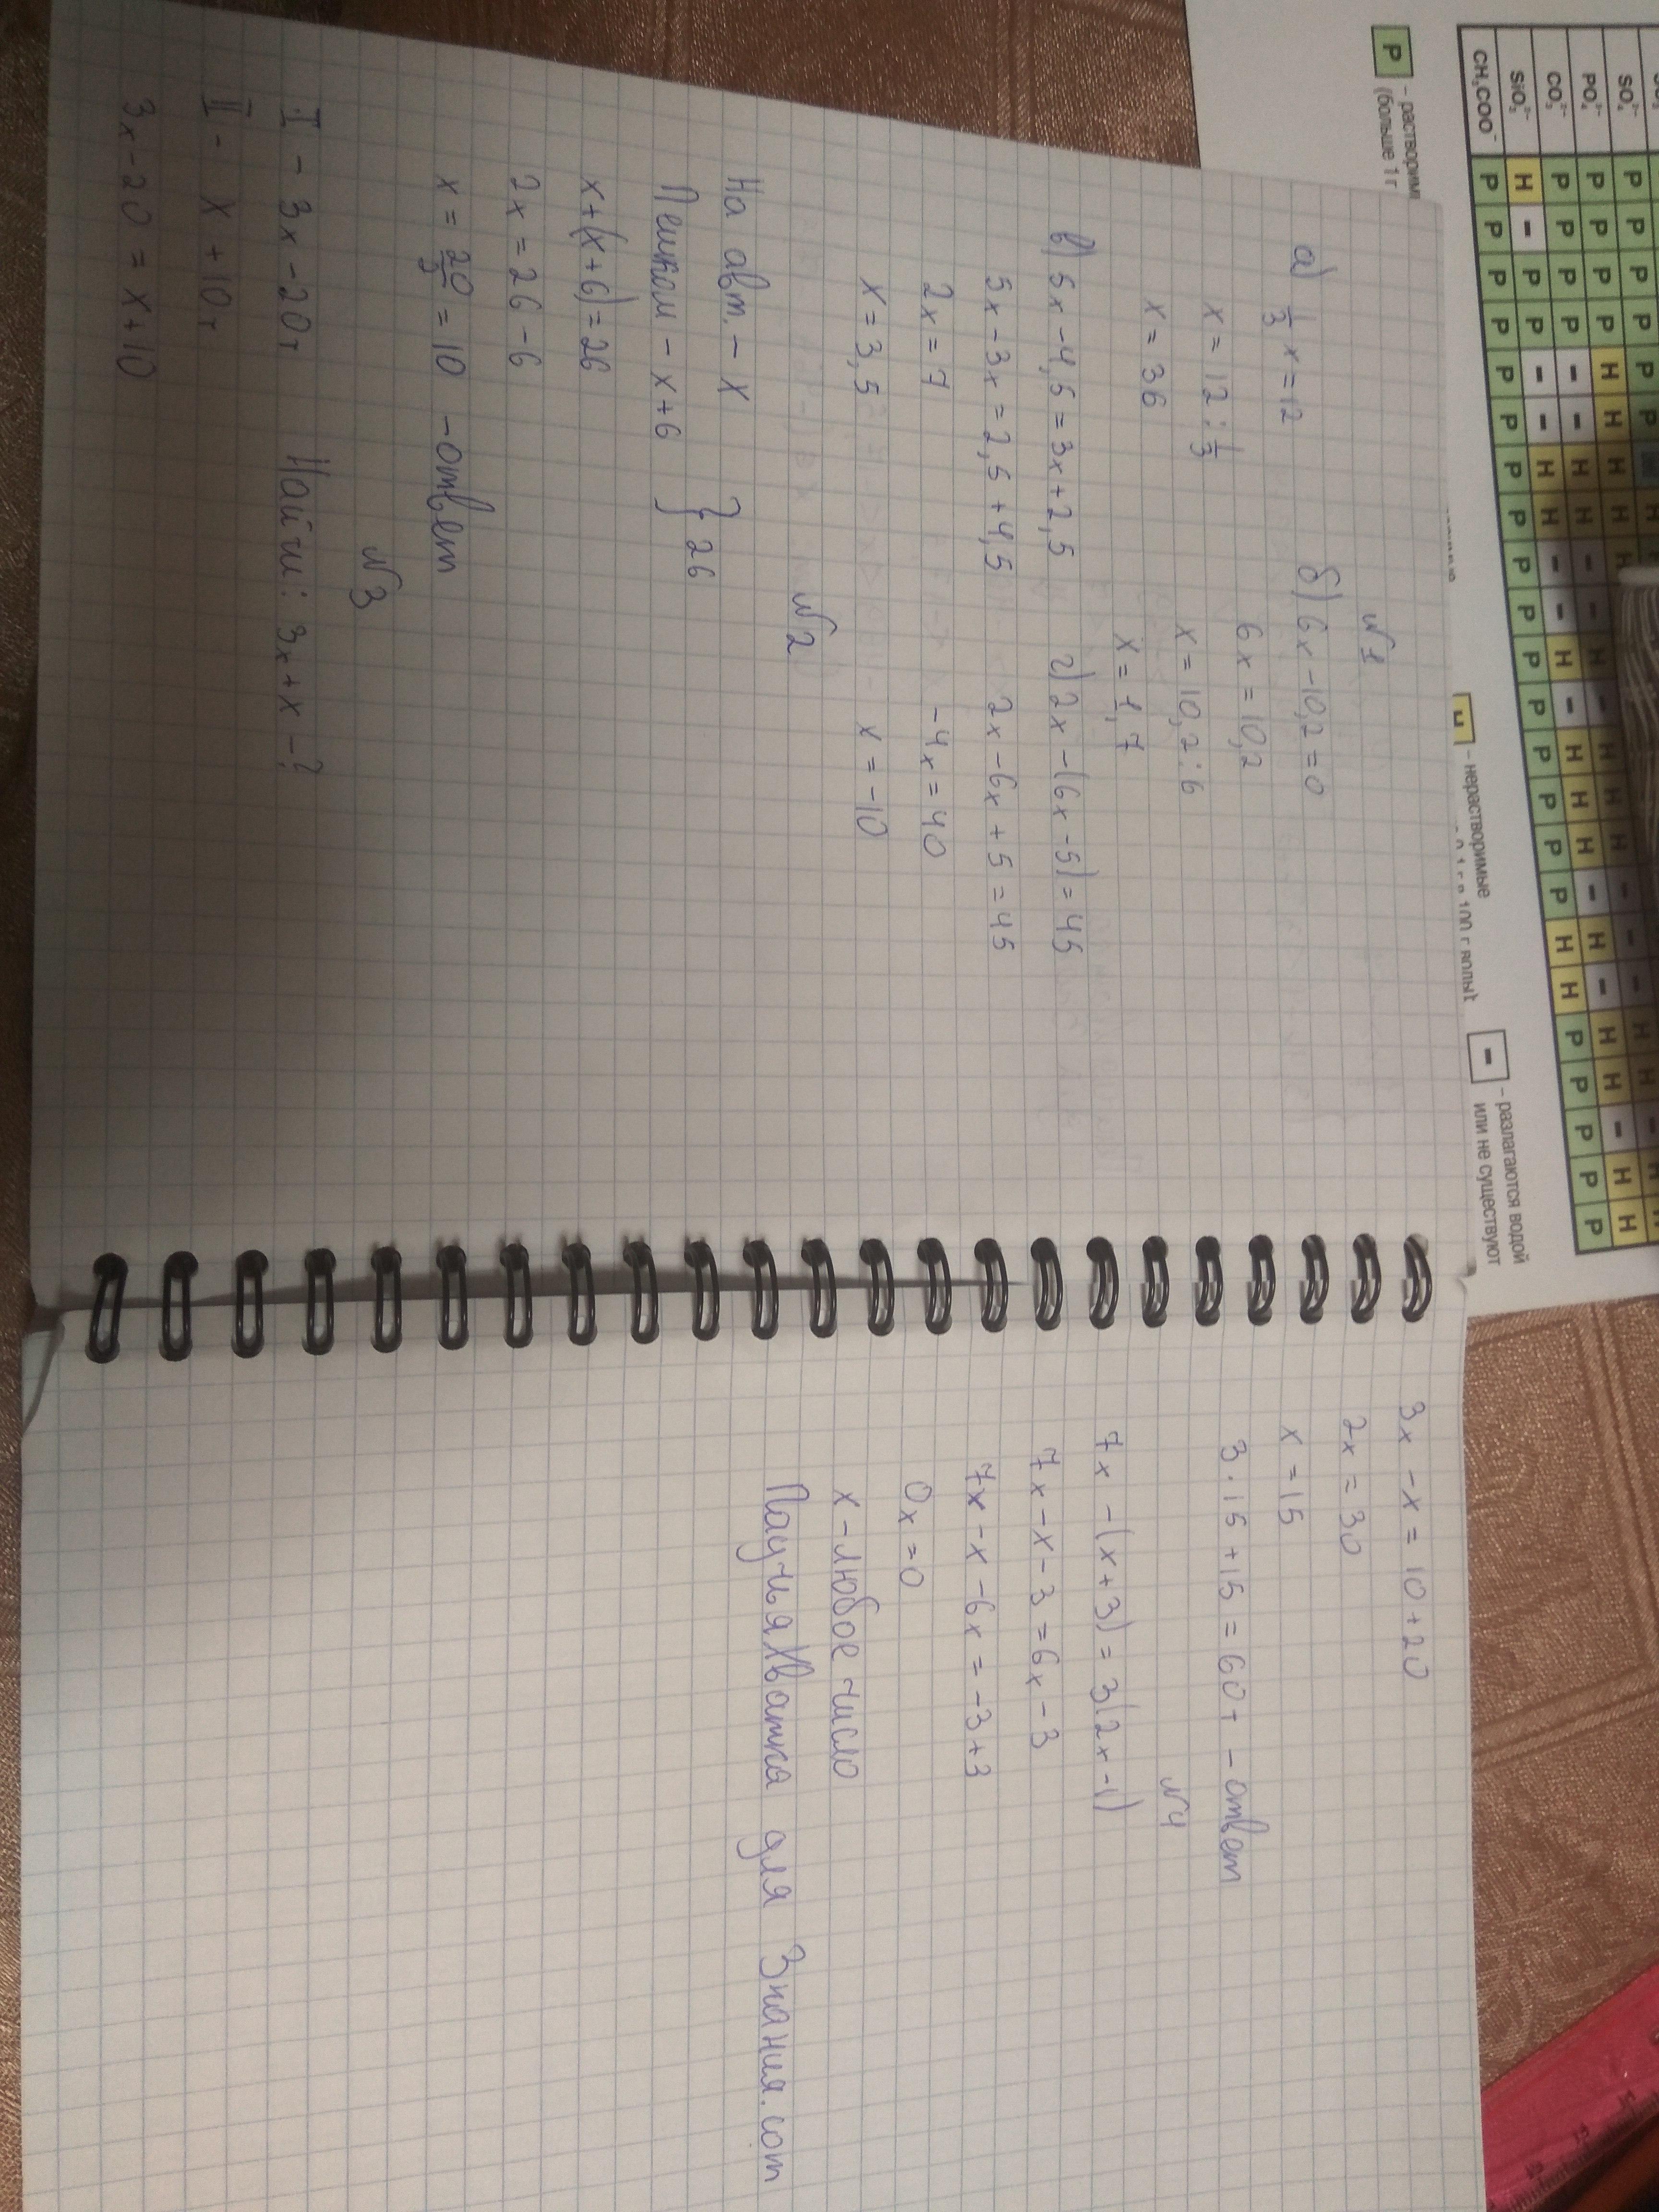 CH₃COO⁻ P P P P P P P P P P P P P P P P P H H P P P P P
SiO₃²⁻ H – P P – – H H – – H – H H – H – H H – H H
CO₃²⁻
PO₄³⁻
SO₄²⁻
P – растворим
(больше 1 г
– нерастворимые
– разлагаются водой
или не существуют
№1
а) 1/3 x = 12
x = 12 : 1/3
x = 36
б) 6x - 10,2 = 0
6x = 10,2
x = 10,2 : 6
x = 1,7
в) 5x - 4,5 = 3x + 2,5
5x - 3x = 2,5 + 4,5
2x = 7
x = 3,5
г) 2x - (6x - 5) = 45
2x - 6x + 5 = 45
-4x = 40
x = -10
№2
На авт. - x
Пешком - x + 6 } 26
x + (x + 6) = 26
2x = 26 - 6
x = 20/2 = 10 - ответ
№3
I - 3x - 20т Найти: 3x + x - ?
II - x + 10т
3x - 20 = x + 10
3x - x = 10 + 20
2x = 30
x = 15
3 · 15 + 15 = 60т - ответ
№4
7x - (x + 3) = 3(2x - 1)
7x - x - 3 = 6x - 3
7x - x - 6x = -3 + 3
0x = 0
x - любое число
ПаучьяХватка для Знания.com